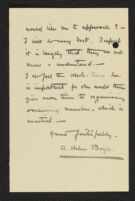 would like me to approach? -
I will do my best. I expect
it is largely that they do not
know & understand -
I so feel the whole time
important for one needs them
give more time to organising
concerning members which is
needed -
Yours faithfully
A. Helen Boyle